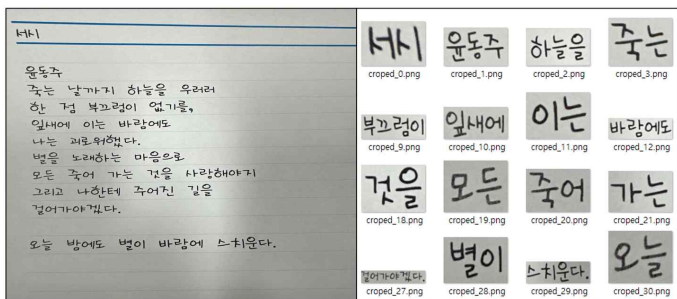 서시
윤동주
죽는 날까지 하늘을 우러러
한 점 부끄럼이 없기를,
잎새에 이는 바람에도
나는 괴로워했다.
별을 노래하는 마음으로
모든 죽어 가는 것을 사랑해야지
그리고 나한테 주어진 길을
걸어가야겠다.
오늘 밤에도 별이 바람에 스치운다.
서시 윤동주 하늘을 죽는
croped_0.png croped_1.png croped_2.png croped_3.png
부끄럼이 잎새에 이는 바람에도
croped_9.png croped_10.png croped_11.png croped_12.png
것을 모든 죽어 가는
croped_18.png croped_19.png croped_20.png croped_21.png
걸어가야겠다. 별이 스치운다. 오늘
croped_27.png croped_28.png croped_29.png croped_30.png